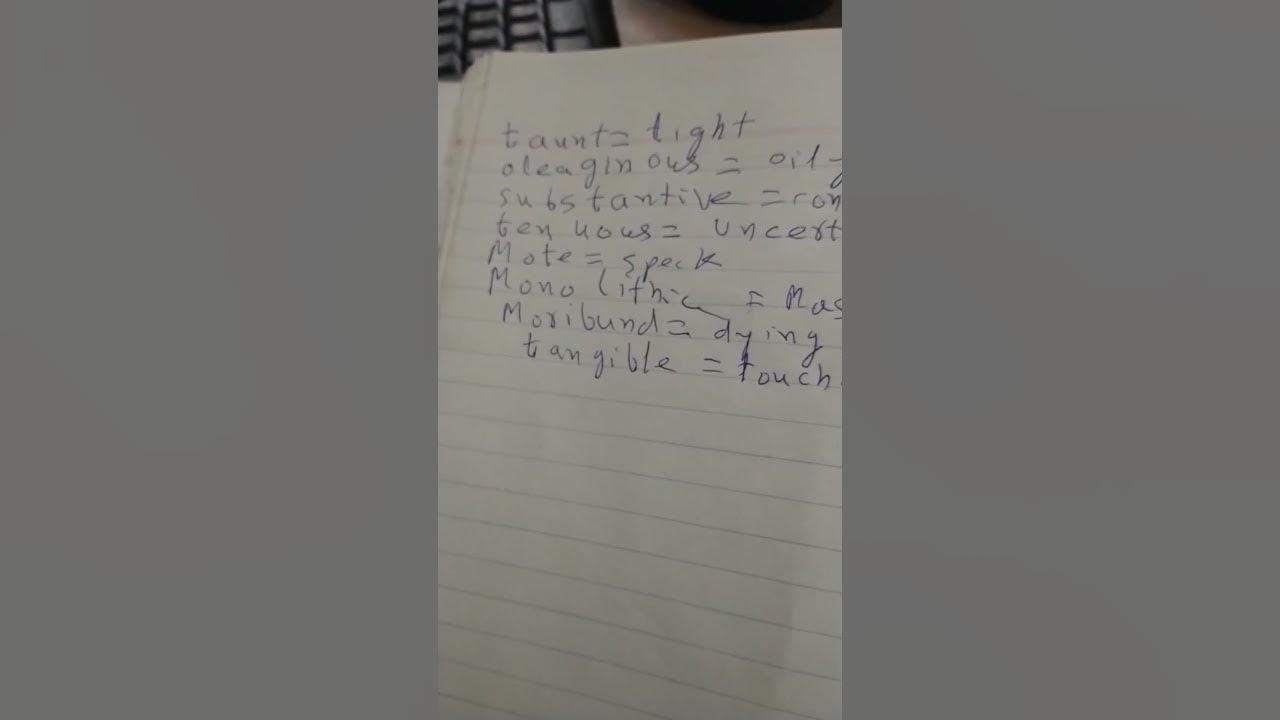 taunt= tight
oleaginous = oily
substantive = con
tenuous= uncert
Mote = speck
Monolithic = Mas
Moribund= dying
tangible = touch